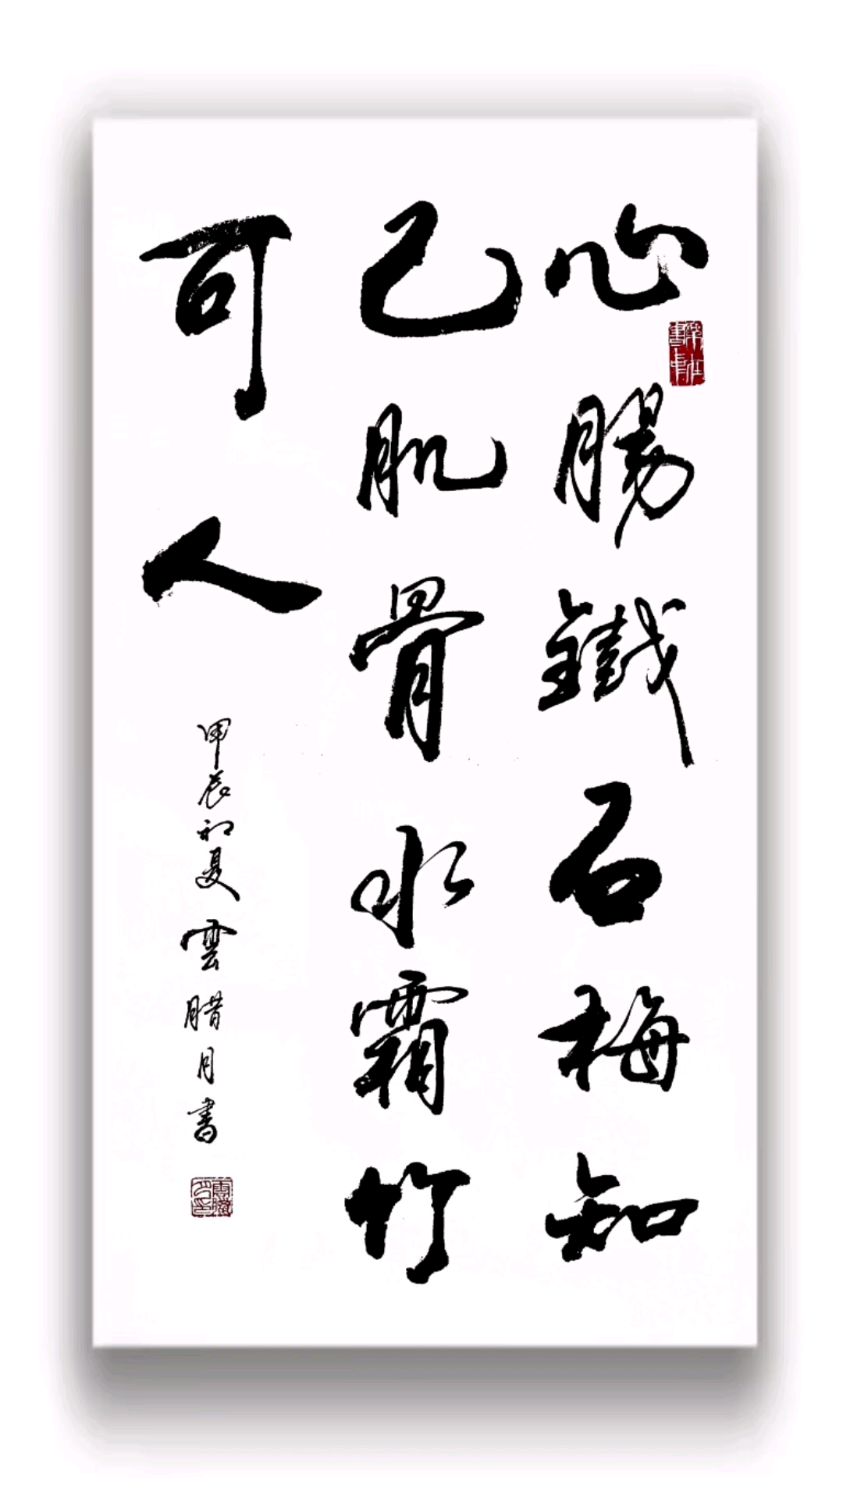 心腸鐵石梅知
己肌骨冰霜竹
可人
甲辰初夏雲腊月書